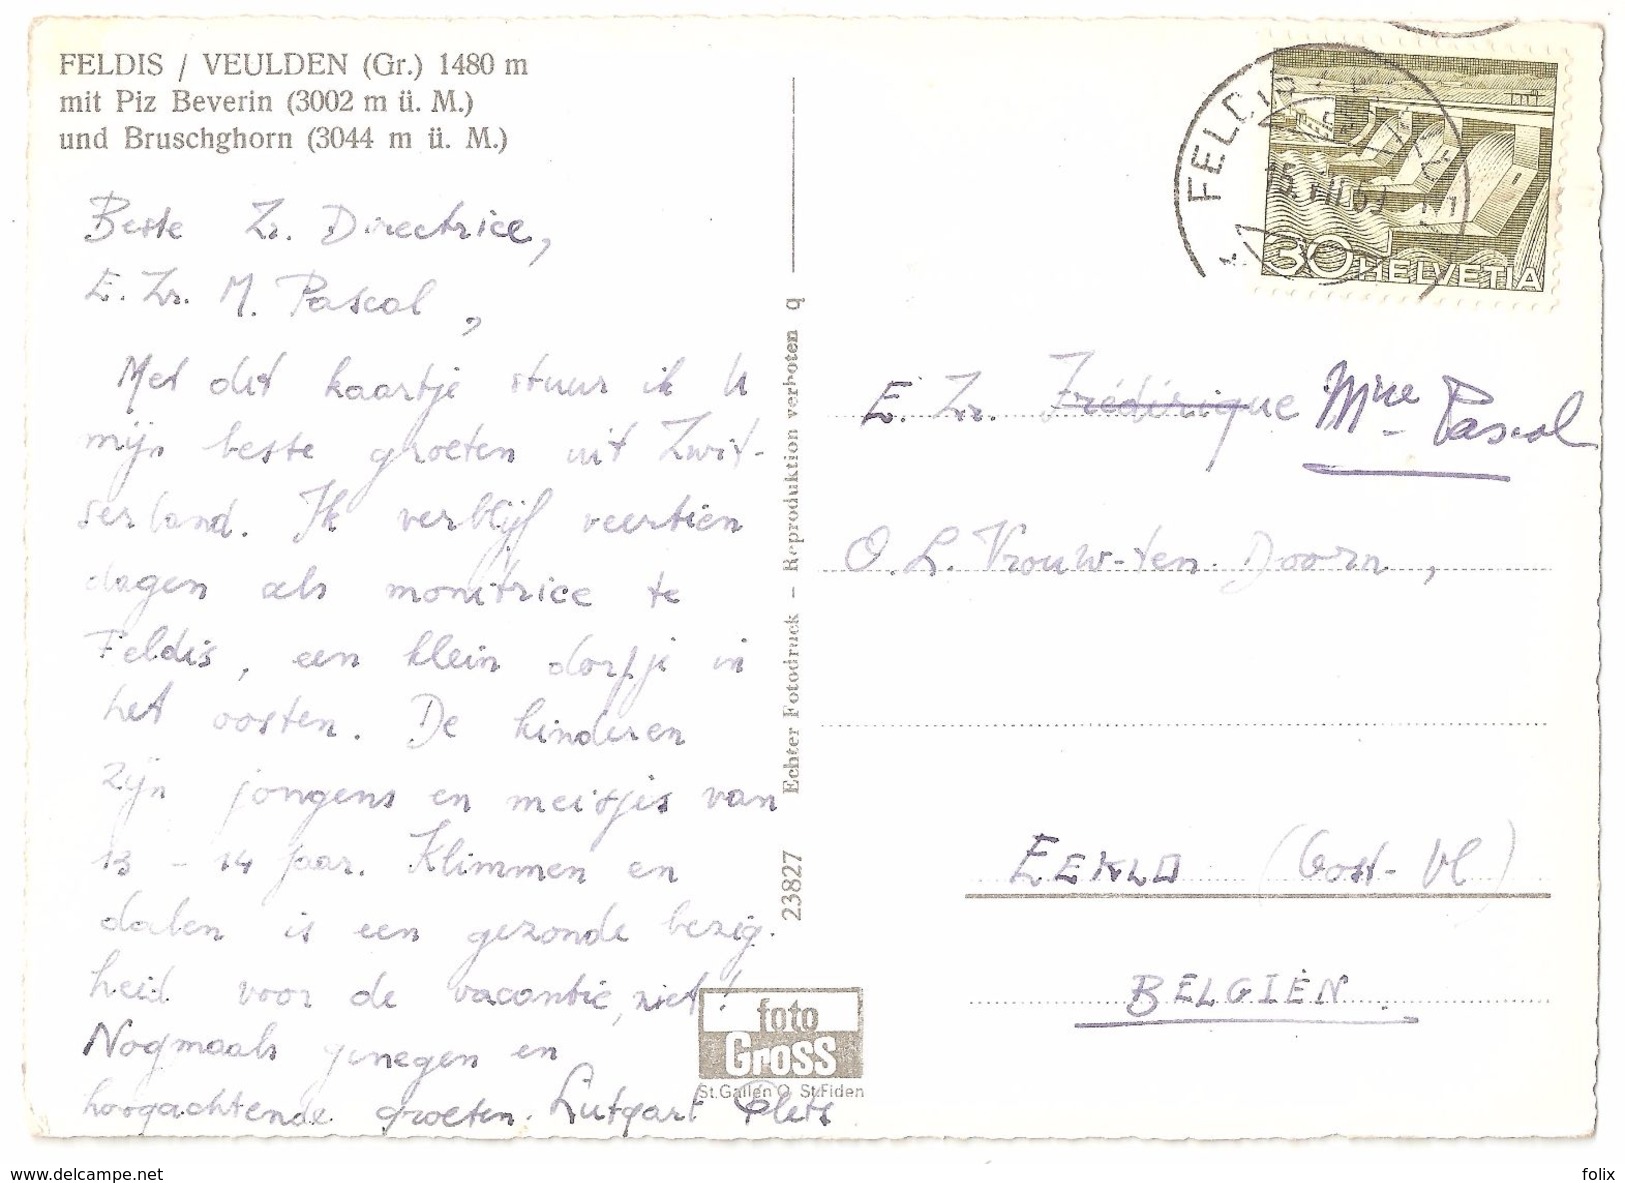 FELDIS / VEULDEN (Gr.) 1480 m
mit Piz Beverin (3002 m ü. M.)
und Bruschghorn (3044 m ü. M.)
Beste Zr. Directrice,
E. Zr. M. Pascal,
Met dit kaartje stuur ik U
mijn beste groeten uit Zwit-
serland. Ik verblijf veertien
dagen als monitrice te
Feldis, een klein dorpje in
het oosten. De kinderen
zijn jongens en meisjes van
13 - 14 jaar. Klimmen en
dalen is een gezonde bezig-
heid voor de vacantie, niet!
Nogmaals genegen en
hoogachtende groeten. Lutgart
23827 Echter Fotodruck – Reproduktion verboten q
foto
Gross
St.Gallen O St.Fiden
FELDIS
30 HELVETIA
E. Zr. Frédérique Mme Pascal
O. L. Vrouw-ten-Doorn,
EEKLO (Oost-Vl)
BELGIËN
www.delcampe.net
folix